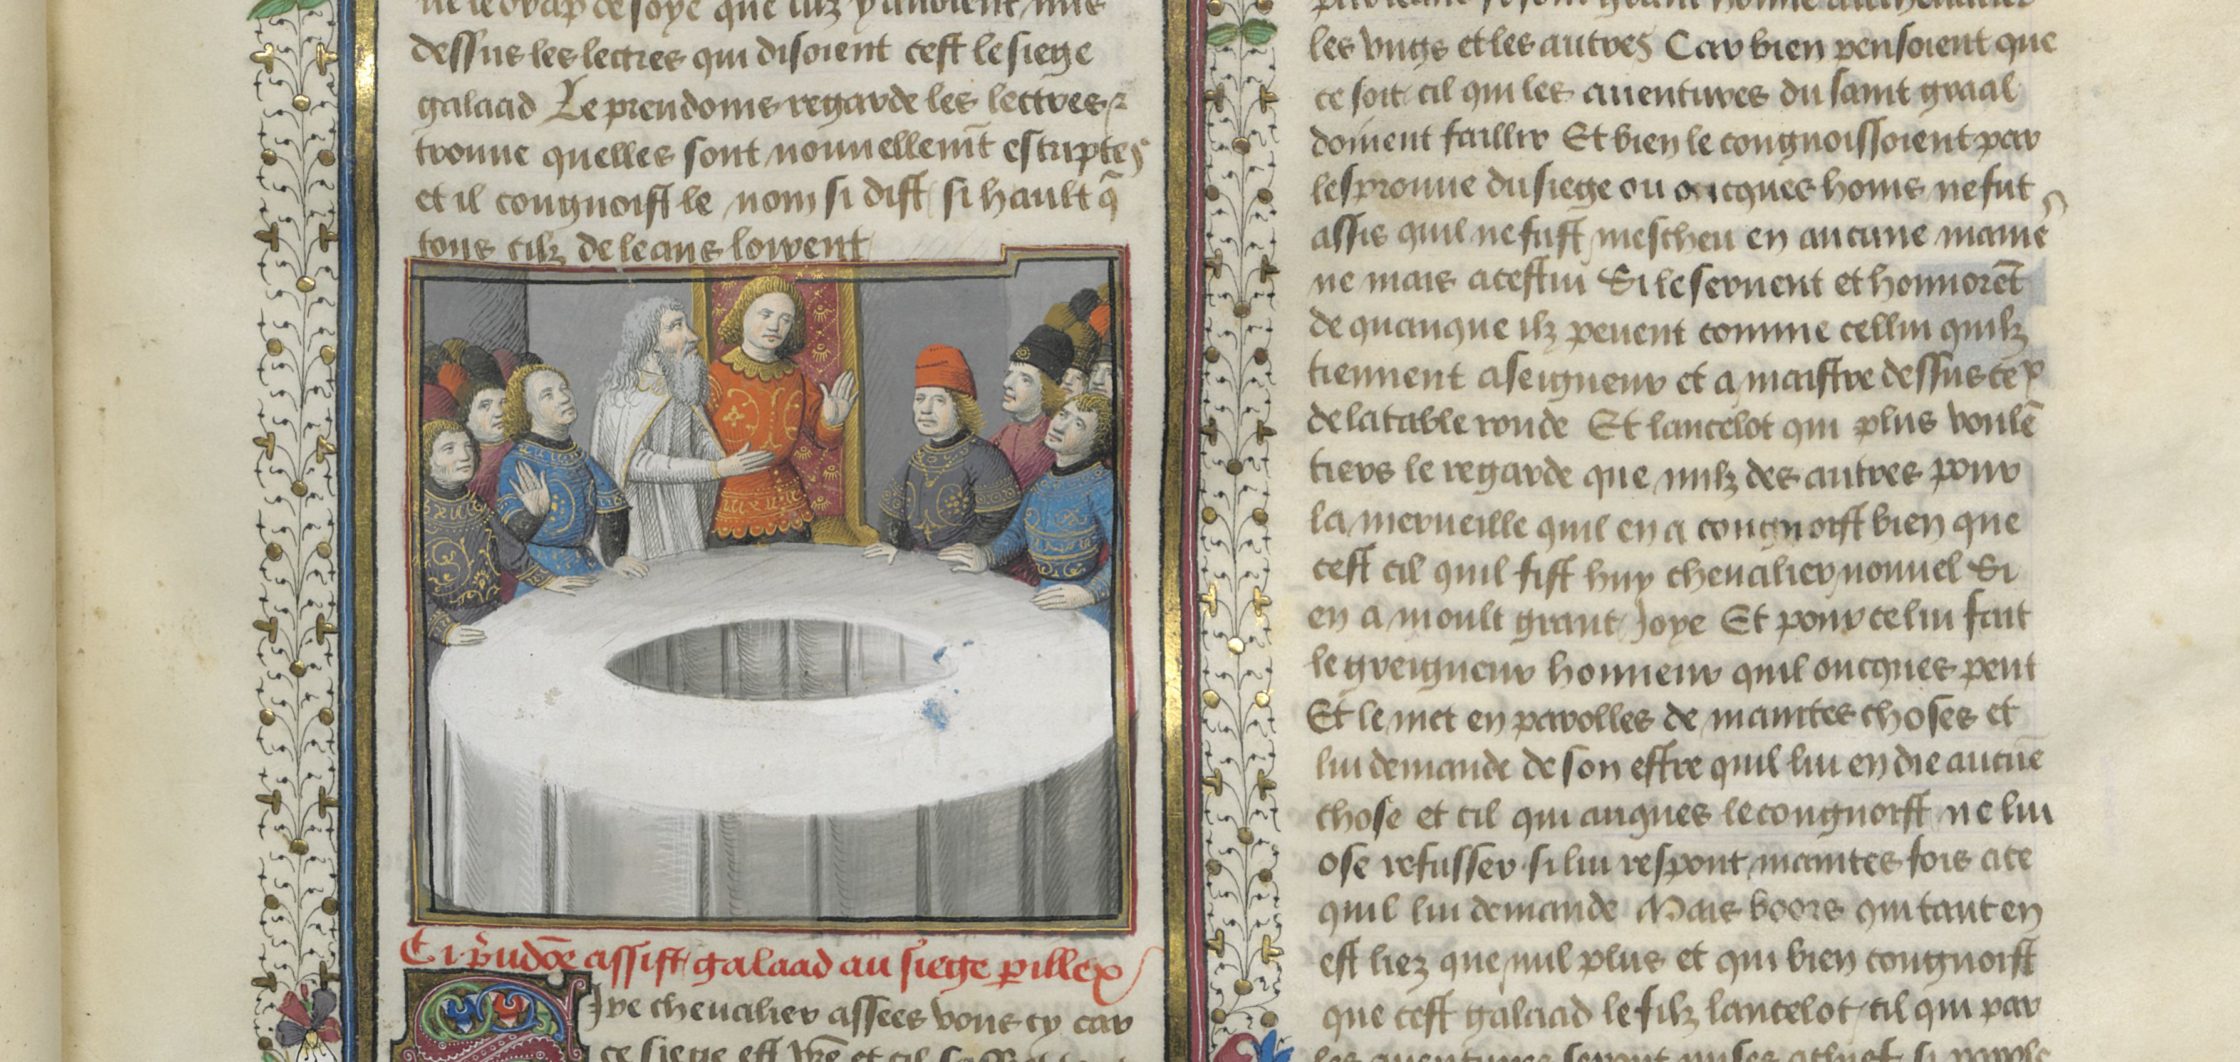 dessus les lectres qui disoient cest le siege
galaad Le preudoms regarde les lectres
trouue quelles sont nouuellemt escriptes
et il congnoist le nom si dist si hault q̄
tous cilz de leans loirent
Ci p̄udōe assist galaad au siege p̱illex
Sire cheualier assees vous cy car
ce siege est vr̄e et cil
les vngs et les autres Car bien pensoient que
ce soit cil qui les auentures du saint graal
doiuent faillir Et bien le congnoissoient par
lesprouue du siege ou oncques homs ne fut
assis quil ne fust mescheu en aucune manie
ne mais a cestui Si le seruent et honnorēt
de quanque ilz peuent comme cellui quilz
tiennent a seigneur et a maistre dessus
de la table ronde Et lancelot qui plus voulē
tiers le regarde que nulz des autres pour
la merueille quil en a congnoist bien que
cest cil quil fist huy cheualier nouuel Si
en a moult grant Joye Et pour ce lui fait
le greigneur honneur quil oncques peut
Et le met en parolles de maintes choses et
lui demande de son estre quil lui en die aucūe
chose et cil qui auques le congnoist ne lui
ose refusser si lui respont maintes fois a ce
quil lui demande Mais boors qui tant en
est liez que nul plus et qui bien congnoist
que cest galaad le filz lancelot cil qui par